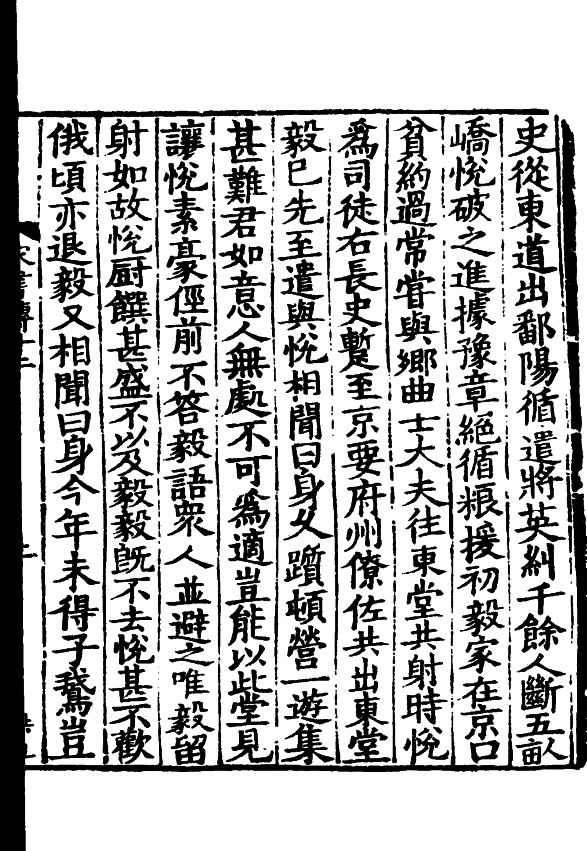 史從東道出鄱陽循遣將英糾千餘人斷五畝
嶠悅破之進據豫章絕循粮援初毅家在京口
貧約過常嘗與鄉曲士大夫往東堂共射時悅
爲司徒右長史蹔至京要府州僚佐共出東堂
毅巳先至遣與悅相聞曰身乆躓頓營一遊集
甚難君如意人無處不可爲適豈能以此堂見
讓悅素豪徑前不答毅語衆人並避之唯毅留
射如故悅厨饌甚盛不以及毅毅旣不去悅甚不歡
俄頃亦退毅又相聞曰身今年未得子鵞豈